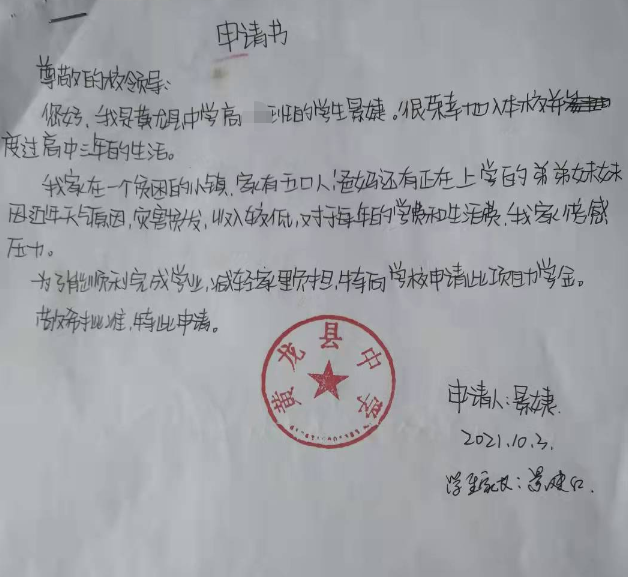 申请书
尊敬的校领导:
您好,我是黄龙县中学高 班的学生景婕。很荣幸地入本校并
度过高中三年的生活。
我家在一个贫困的小镇,家有五口人,爸妈还有正在上学的弟弟妹妹
因近年天气原因,灾害频发,收入较低,对于每年的学费和生活费,我家倍感
压力。
为了能顺利完成学业,减轻家里负担,特向学校申请此项助学金。
敬希批准,特此申请。
黄龙县中学
申请人:景婕.
2021.10.3.
学生家长:景建